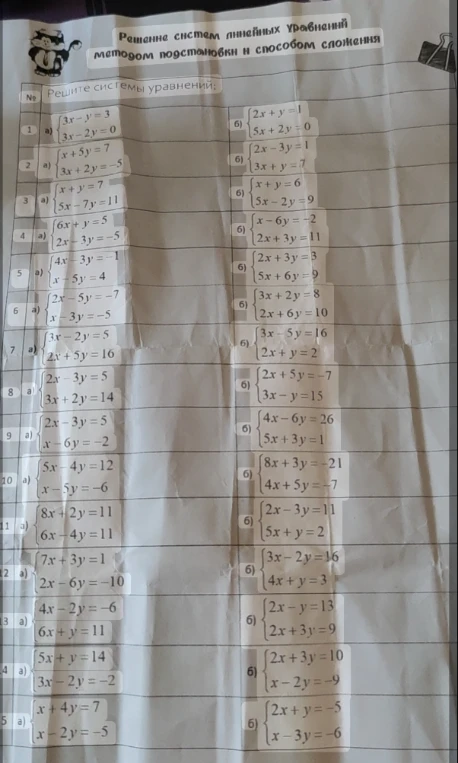 Решение систем линейных уравнений
методом подстановки и способом сложения
№ Решите системы уравнений:
1 а) {3x − y = 3
3x − 2y = 0
б) {2x + y = 1
5x + 2y = 0
2 а) {x + 5y = 7
3x + 2y = −5
б) {2x − 3y = 1
3x + y = 7
3 а) {x + y = 7
5x − 7y = 11
б) {x + y = 6
5x − 2y = 9
4 а) {6x + y = 5
2x − 3y = −5
б) {x − 6y = −2
2x + 3y = 11
5 а) {4x − 3y = −1
x − 5y = 4
б) {2x + 3y = 3
5x + 6y = 9
6 а) {2x − 5y = −7
x − 3y = −5
б) {3x + 2y = 8
2x + 6y = 10
7 а) {3x − 2y = 5
2x + 5y = 16
б) {3x − 5y = 16
2x + y = 2
8 а) {2x − 3y = 5
3x + 2y = 14
б) {2x + 5y = −7
3x − y = 15
9 а) {2x − 3y = 5
x − 6y = −2
б) {4x − 6y = 26
5x + 3y = 1
10 а) {5x − 4y = 12
x − 5y = −6
б) {8x + 3y = −21
4x + 5y = −7
11 а) {8x + 2y = 11
6x − 4y = 11
б) {2x − 3y = 11
5x + y = 2
2 а) {7x + 3y = 1
2x − 6y = −10
б) {3x − 2y = 16
4x + y = 3
3 а) {4x − 2y = −6
6x + y = 11
б) {2x − y = 13
2x + 3y = 9
4 а) {5x + y = 14
3x − 2y = −2
б) {2x + 3y = 10
x − 2y = −9
5 а) {x + 4y = 7
x − 2y = −5
б) {2x + y = −5
x − 3y = −6